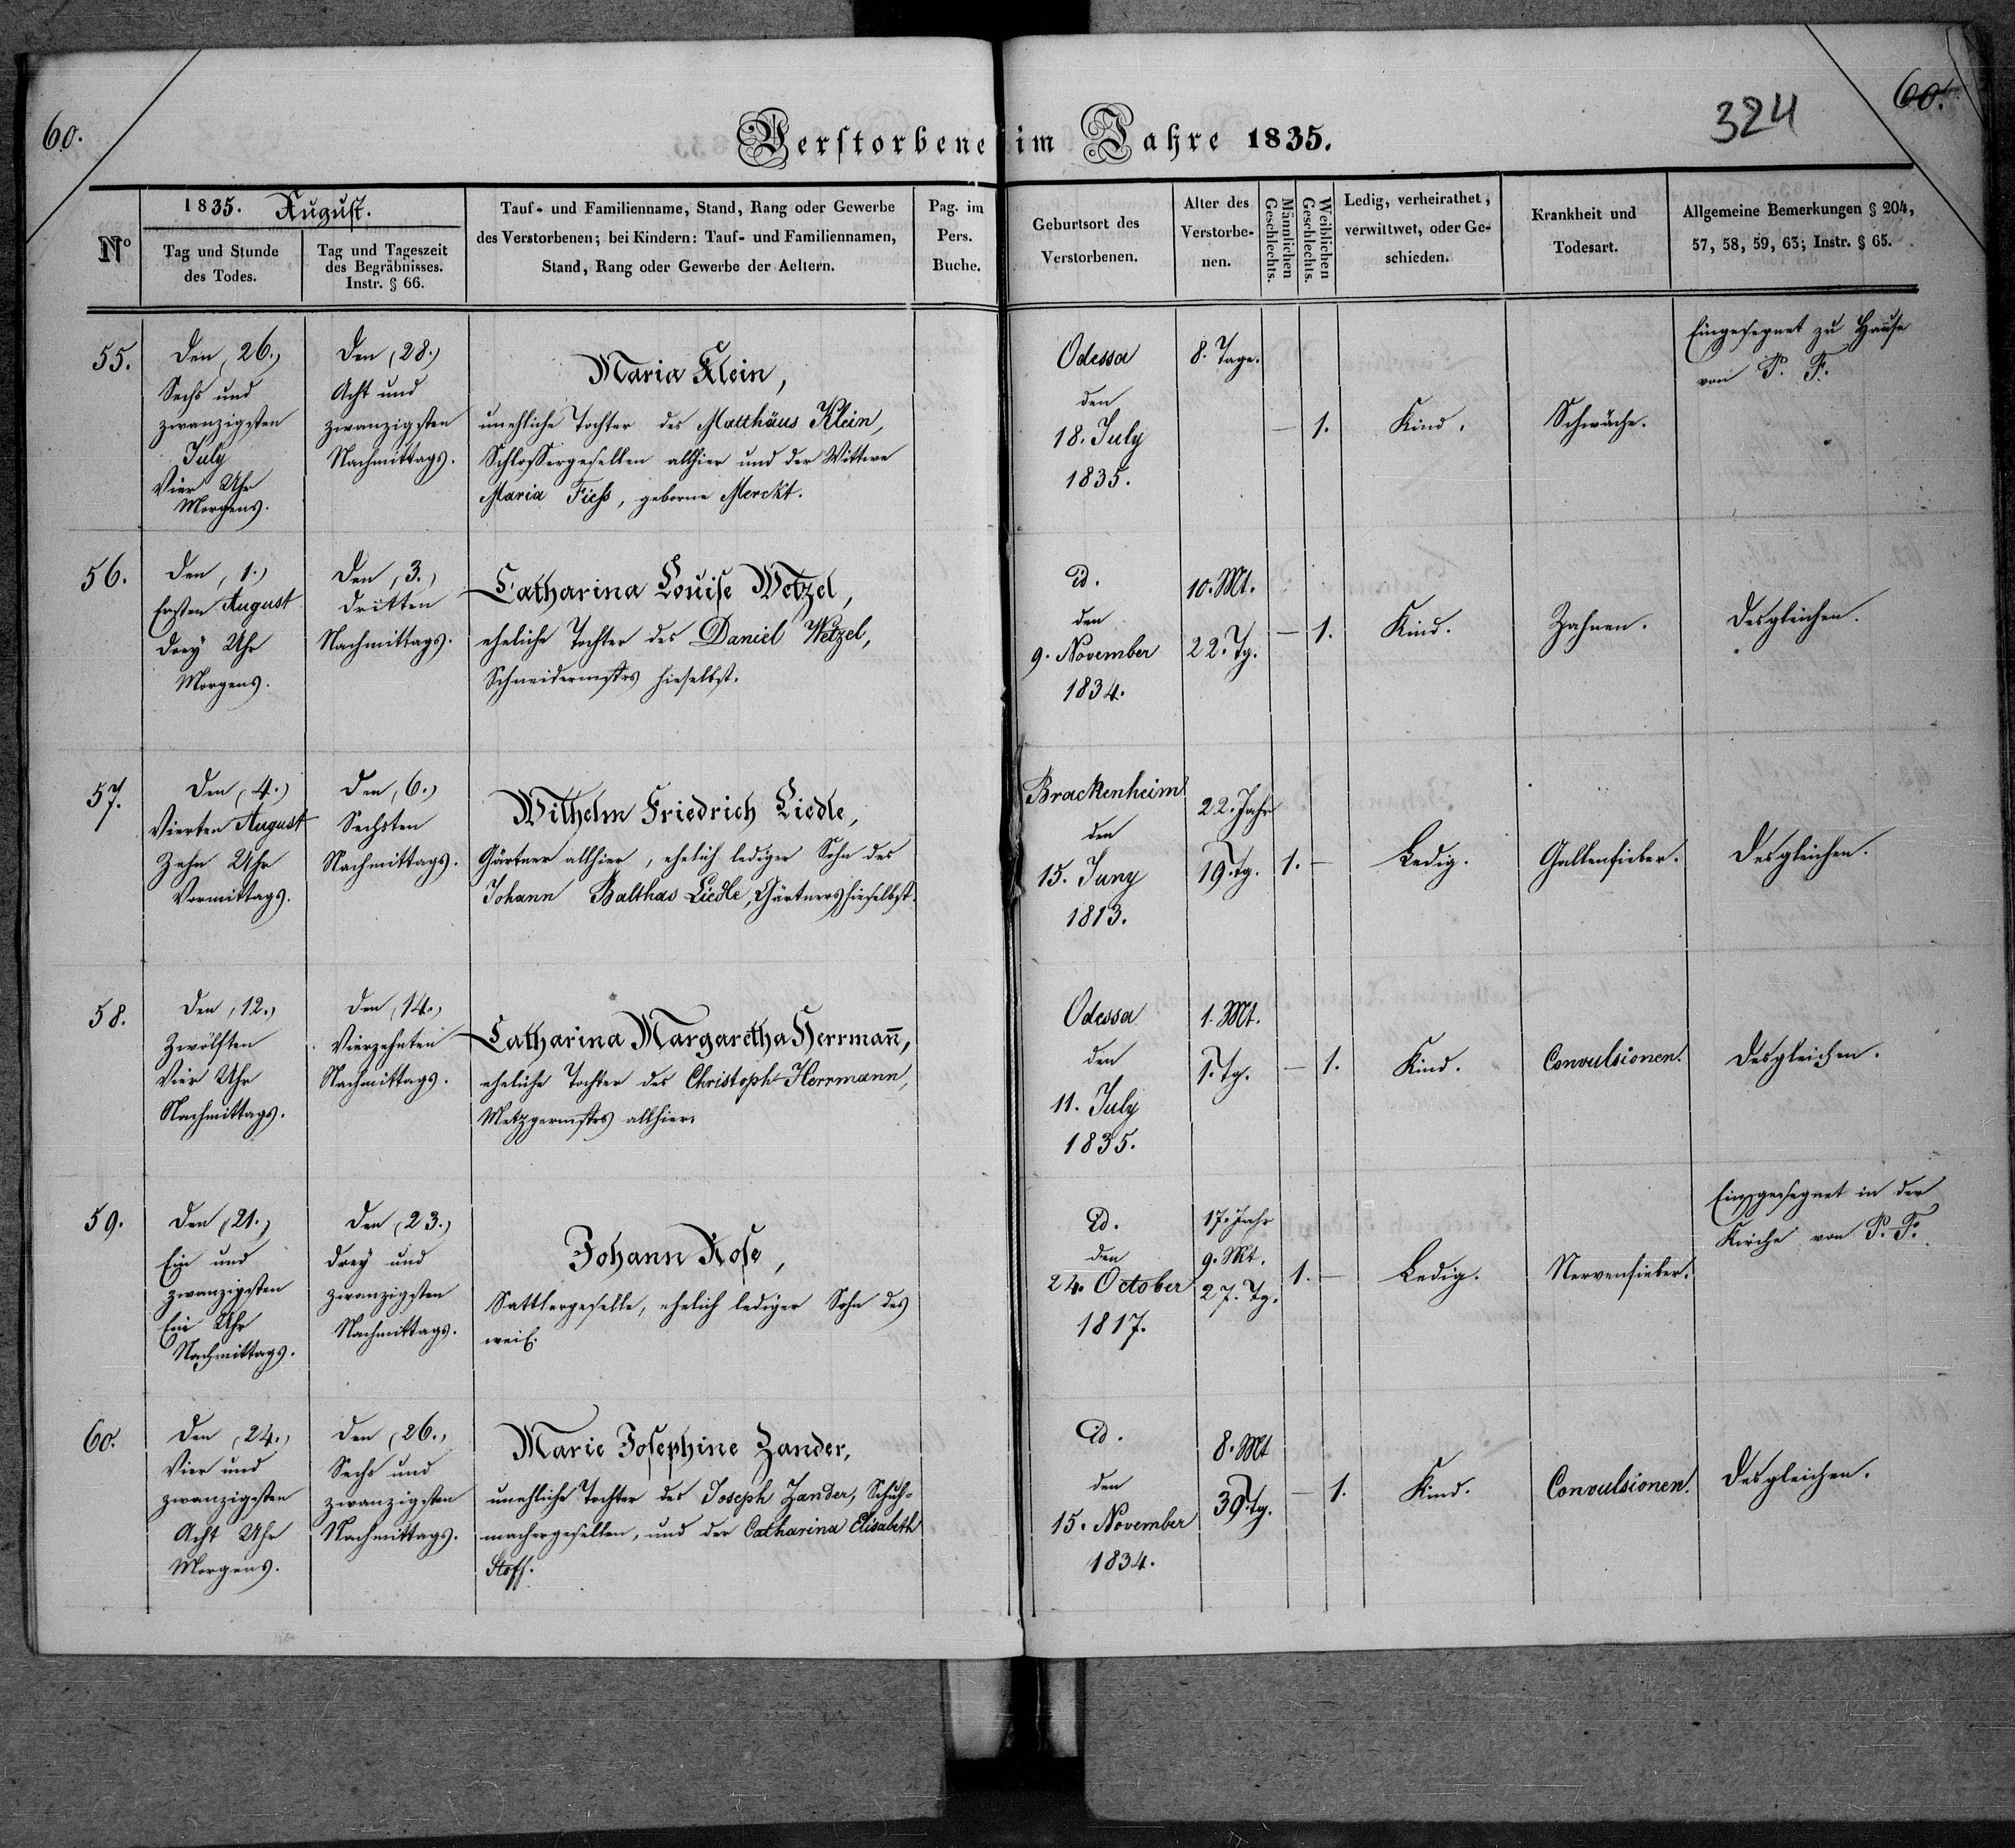 60.
Verstorbene im Jahre 1835.
324
60.
Nº
1835. August.
Tag und Stunde
des Todes.
Tag und Tageszeit
des Begräbnisses.
Instr. § 66.
Tauf- und Familienname, Stand, Rang oder Gewerbe
des Verstorbenen; bei Kindern: Tauf- und Familiennamen,
Stand, Rang oder Gewerbe der Aeltern.
Pag. im
Pers.
Buche.
Geburtsort des
Verstorbenen.
Alter des
Verstorbe-
nen.
Männlichen
Geschlechts.
Weiblichen
Geschlechts.
Ledig, verheirathet,
verwittwet, oder Ge-
schieden.
Krankheit und
Todesart.
Allgemeine Bemerkungen § 204,
57, 58, 59, 63; Instr. § 65.
55.
Den (26.)
Sechs und
zwanzigsten
July
Vier Uhr
Morgens.
Den (28.)
Acht und
zwanzigsten
Nachmittags.
Maria Klein,
unehliche Tochter des Matthäus Klein,
Schlossergesellen allhier und der Wittwe
Maria Fiess, geborne Merckt.
Odessa
den
18. July
1835.
8. Tage.
— 1.
Kind.
Schwäche.
Eingesegnet zu Hause
von P. F.
56.
Den (1.)
Ersten August
Drey Uhr
Morgens.
Den (3.)
Dritten
Nachmittags.
Catharina Louise Wetzel,
eheliche Tochter des Daniel Wetzel,
Schneidermstrs hieselbst.
id.
den
9. November
1834.
10. Mt.
22. Tg.
— 1.
Kind.
Zahnen.
Desgleichen.
57.
Den (4.)
Vierten August
Zehn Uhr
Vormittags.
Den (6.)
Sechsten
Nachmittags.
Wilhelm Friedrich Liedle,
Gärtner allhier, ehelich lediger Sohn des
Johann Balthas Liedle, Gärtners hieselbst.
Brackenheim
den
15. Juny
1813.
22. Jahr
19. Tg.
1. —
Ledig.
Gallenfieber.
Desgleichen.
58.
Den (12.)
Zwölften
Vier Uhr
Nachmittags.
Den (14.)
Vierzehnten
Nachmittags.
Catharina Margaretha Herrman̄,
eheliche Tochter des Christoph Herrmann,
Metzgermstrs allhier.
Odessa
den
11. July
1835.
1. Mt.
1. Tg.
— 1.
Kind.
Convulsionen.
Desgleichen.
59.
Den (21.)
Ein und
zwanzigsten
Ein Uhr
Nachmittags.
Den (23.)
Drey und
zwanzigsten
Nachmittags.
Johann Rose,
Sattlergeselle, ehelich lediger Sohn des
weil.
id.
den
24. October
1817.
17. Jahr
9. Mt.
27. Tg.
1. —
Ledig.
Nervenfieber.
Eingesegnet in der
Kirche von P. F.
60.
Den (24.)
Vier und
zwanzigsten
Acht Uhr
Morgens.
Den (26.)
Sechs und
zwanzigsten
Nachmittags.
Marie Josephine Zander,
unehliche Tochter des Joseph Zander, Schuh-
machergesellen, und der Catharina Elisabeth
Stoff.
id.
den
15. November
1834.
8. Mt
39. Tg.
— 1.
Kind.
Convulsionen.
Desgleichen.